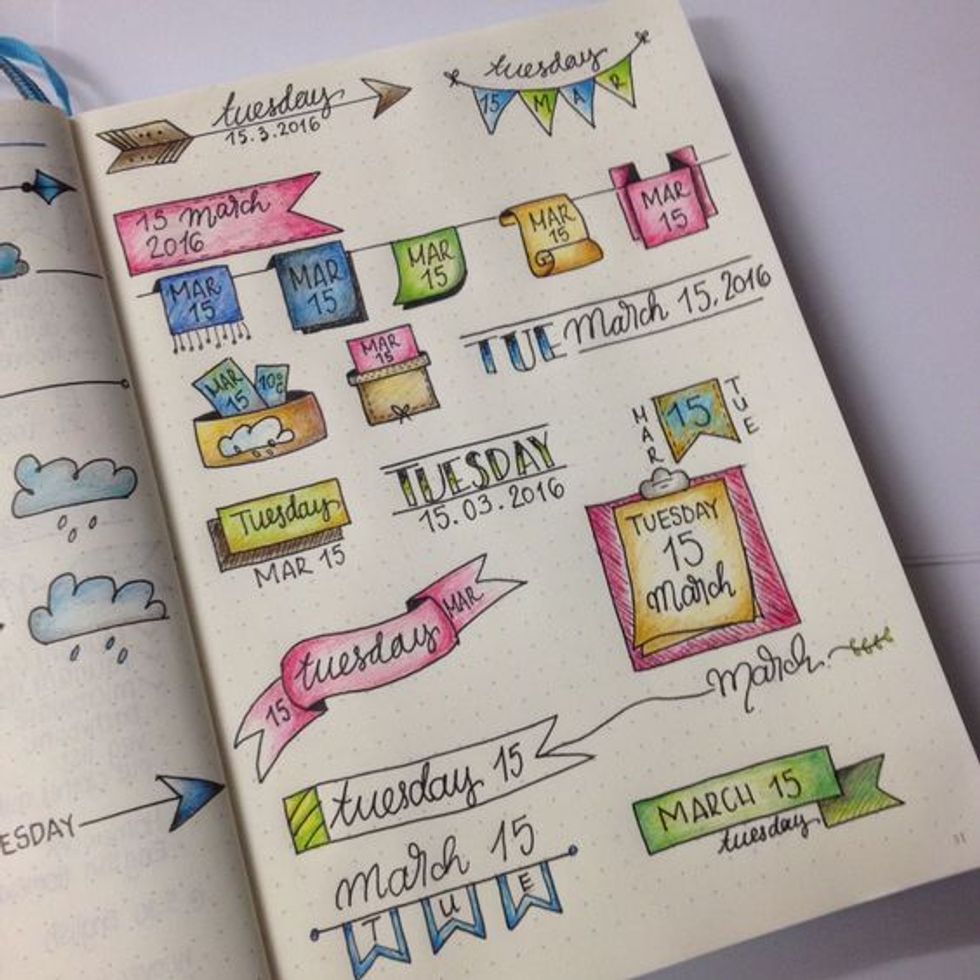 tuesday
15.3.2016
tuesday
15 MAR
15 march
2016
MAR
15
MAR
15
MAR
15
MAR
15
MAR
15
TUE March 15, 2016
MAR
15
10°
MAR
15
MAR
15
TUE
TUESDAY
15.03.2016
Tuesday
MAR 15
TUESDAY
15
march
15 tuesday MAR
march
tuesday 15
MARCH 15
tuesday
march 15
TUE
ESDAY